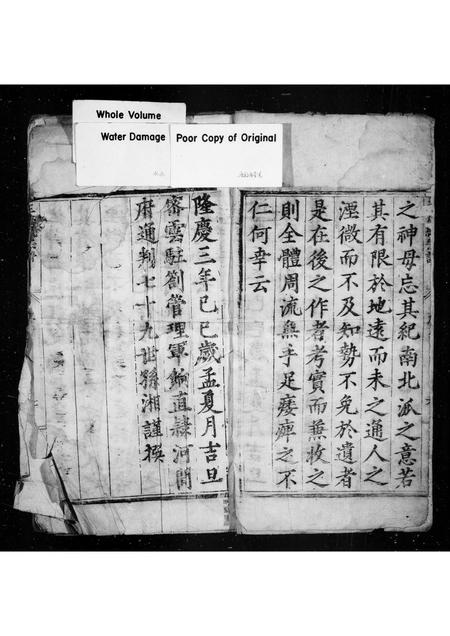 Whole Volume
Water Damage
Poor Copy of Original
之神毋忘其紀南北派之意若
其有限於地遠而未之通人之
湮微而不及知勢不免於遺者
是在後之作者考實而兼收之
則全體周流無手足痿痺之不
仁何幸云
隆慶三年己巳歲孟夏月吉旦
密雲駐劄管理軍餉直隷河間
府通判七十九世孫湘謹撰